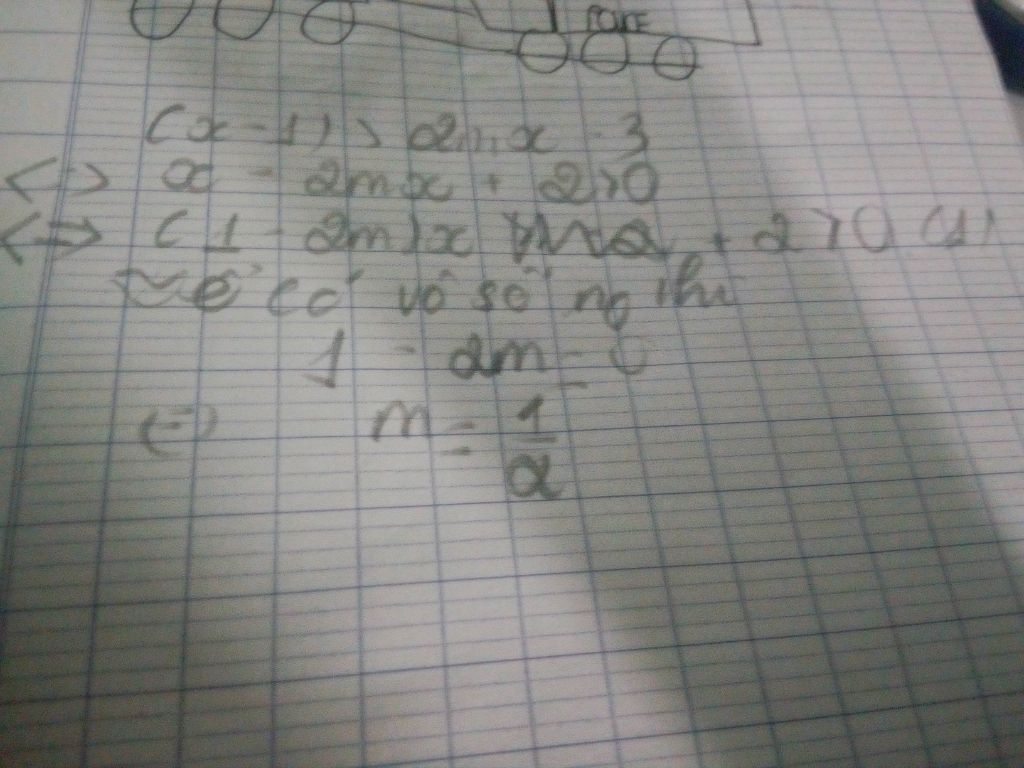 POLICE
(x - 1) > 2mx - 3
<=> x - 2mx + 2 > 0
<=> (1 - 2m)x + 2 > 0 (1)
Để có vô số ng thì
1 - 2m = 0
<=> m = 1/2